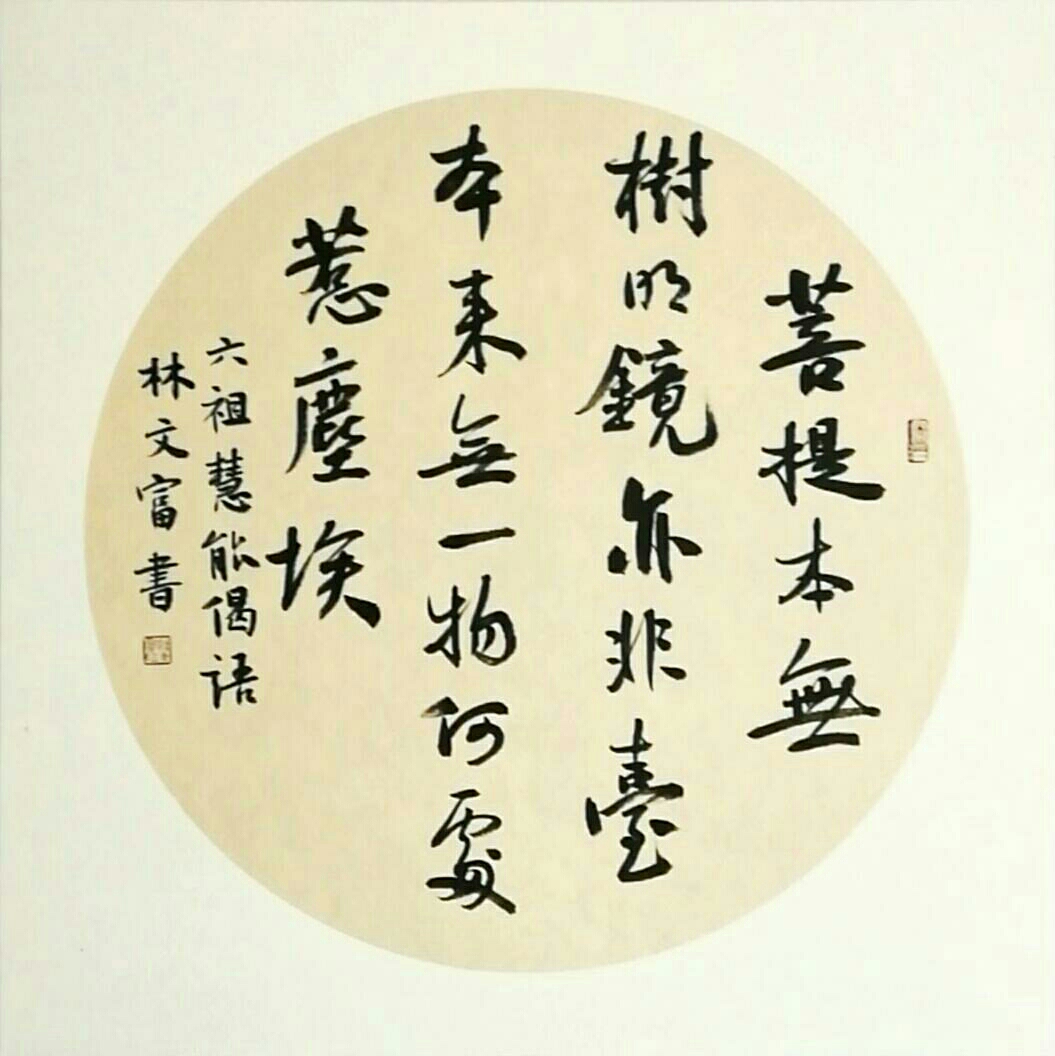 菩提本無
樹明鏡亦非臺
本来無一物何處
惹塵埃
六祖慧能偈語
林文富書